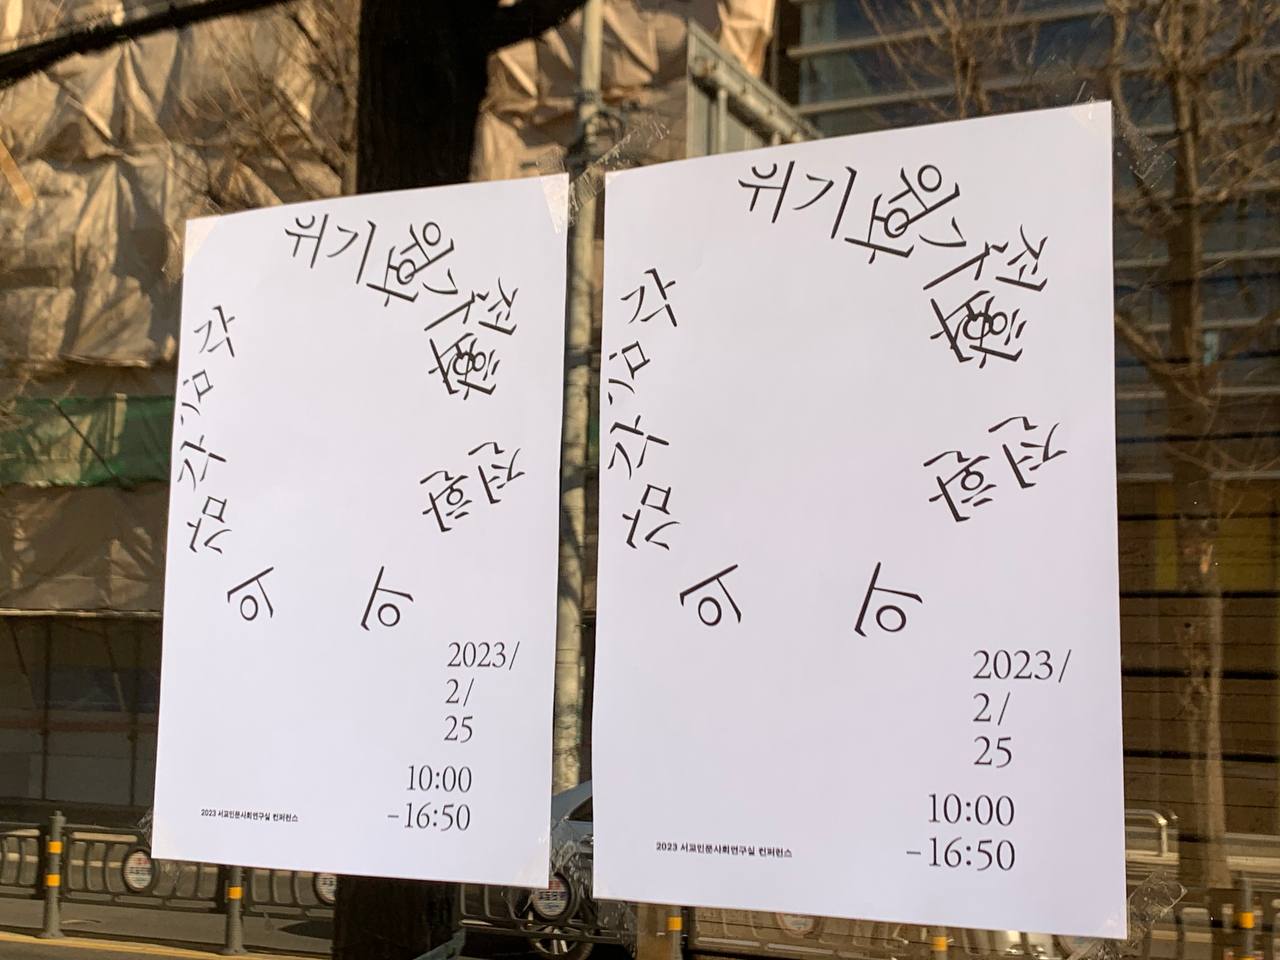 위기와
위기
전환
전환
의
의
감각
감각
2023/
2/
25
10:00
–16:50
2023 서교인문사회연구실 컨퍼런스
위기와
위기
전환
전환
의
의
감각
감각
2023/
2/
25
10:00
–16:50
2023 서교인문사회연구실 컨퍼런스